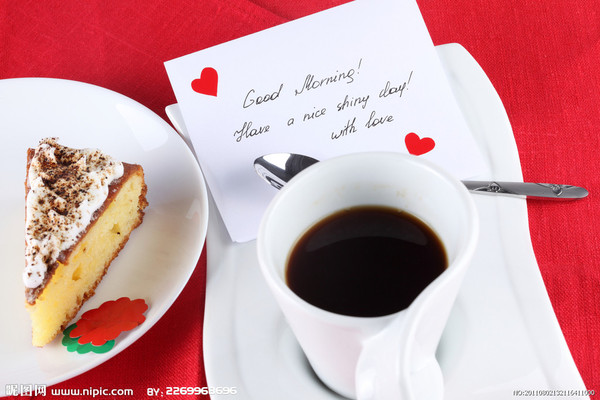 Good Morning!
Have a nice shiny day!
with love
昵图网 www.nipic.com BY: 2269968696
NO:20110802132116411000